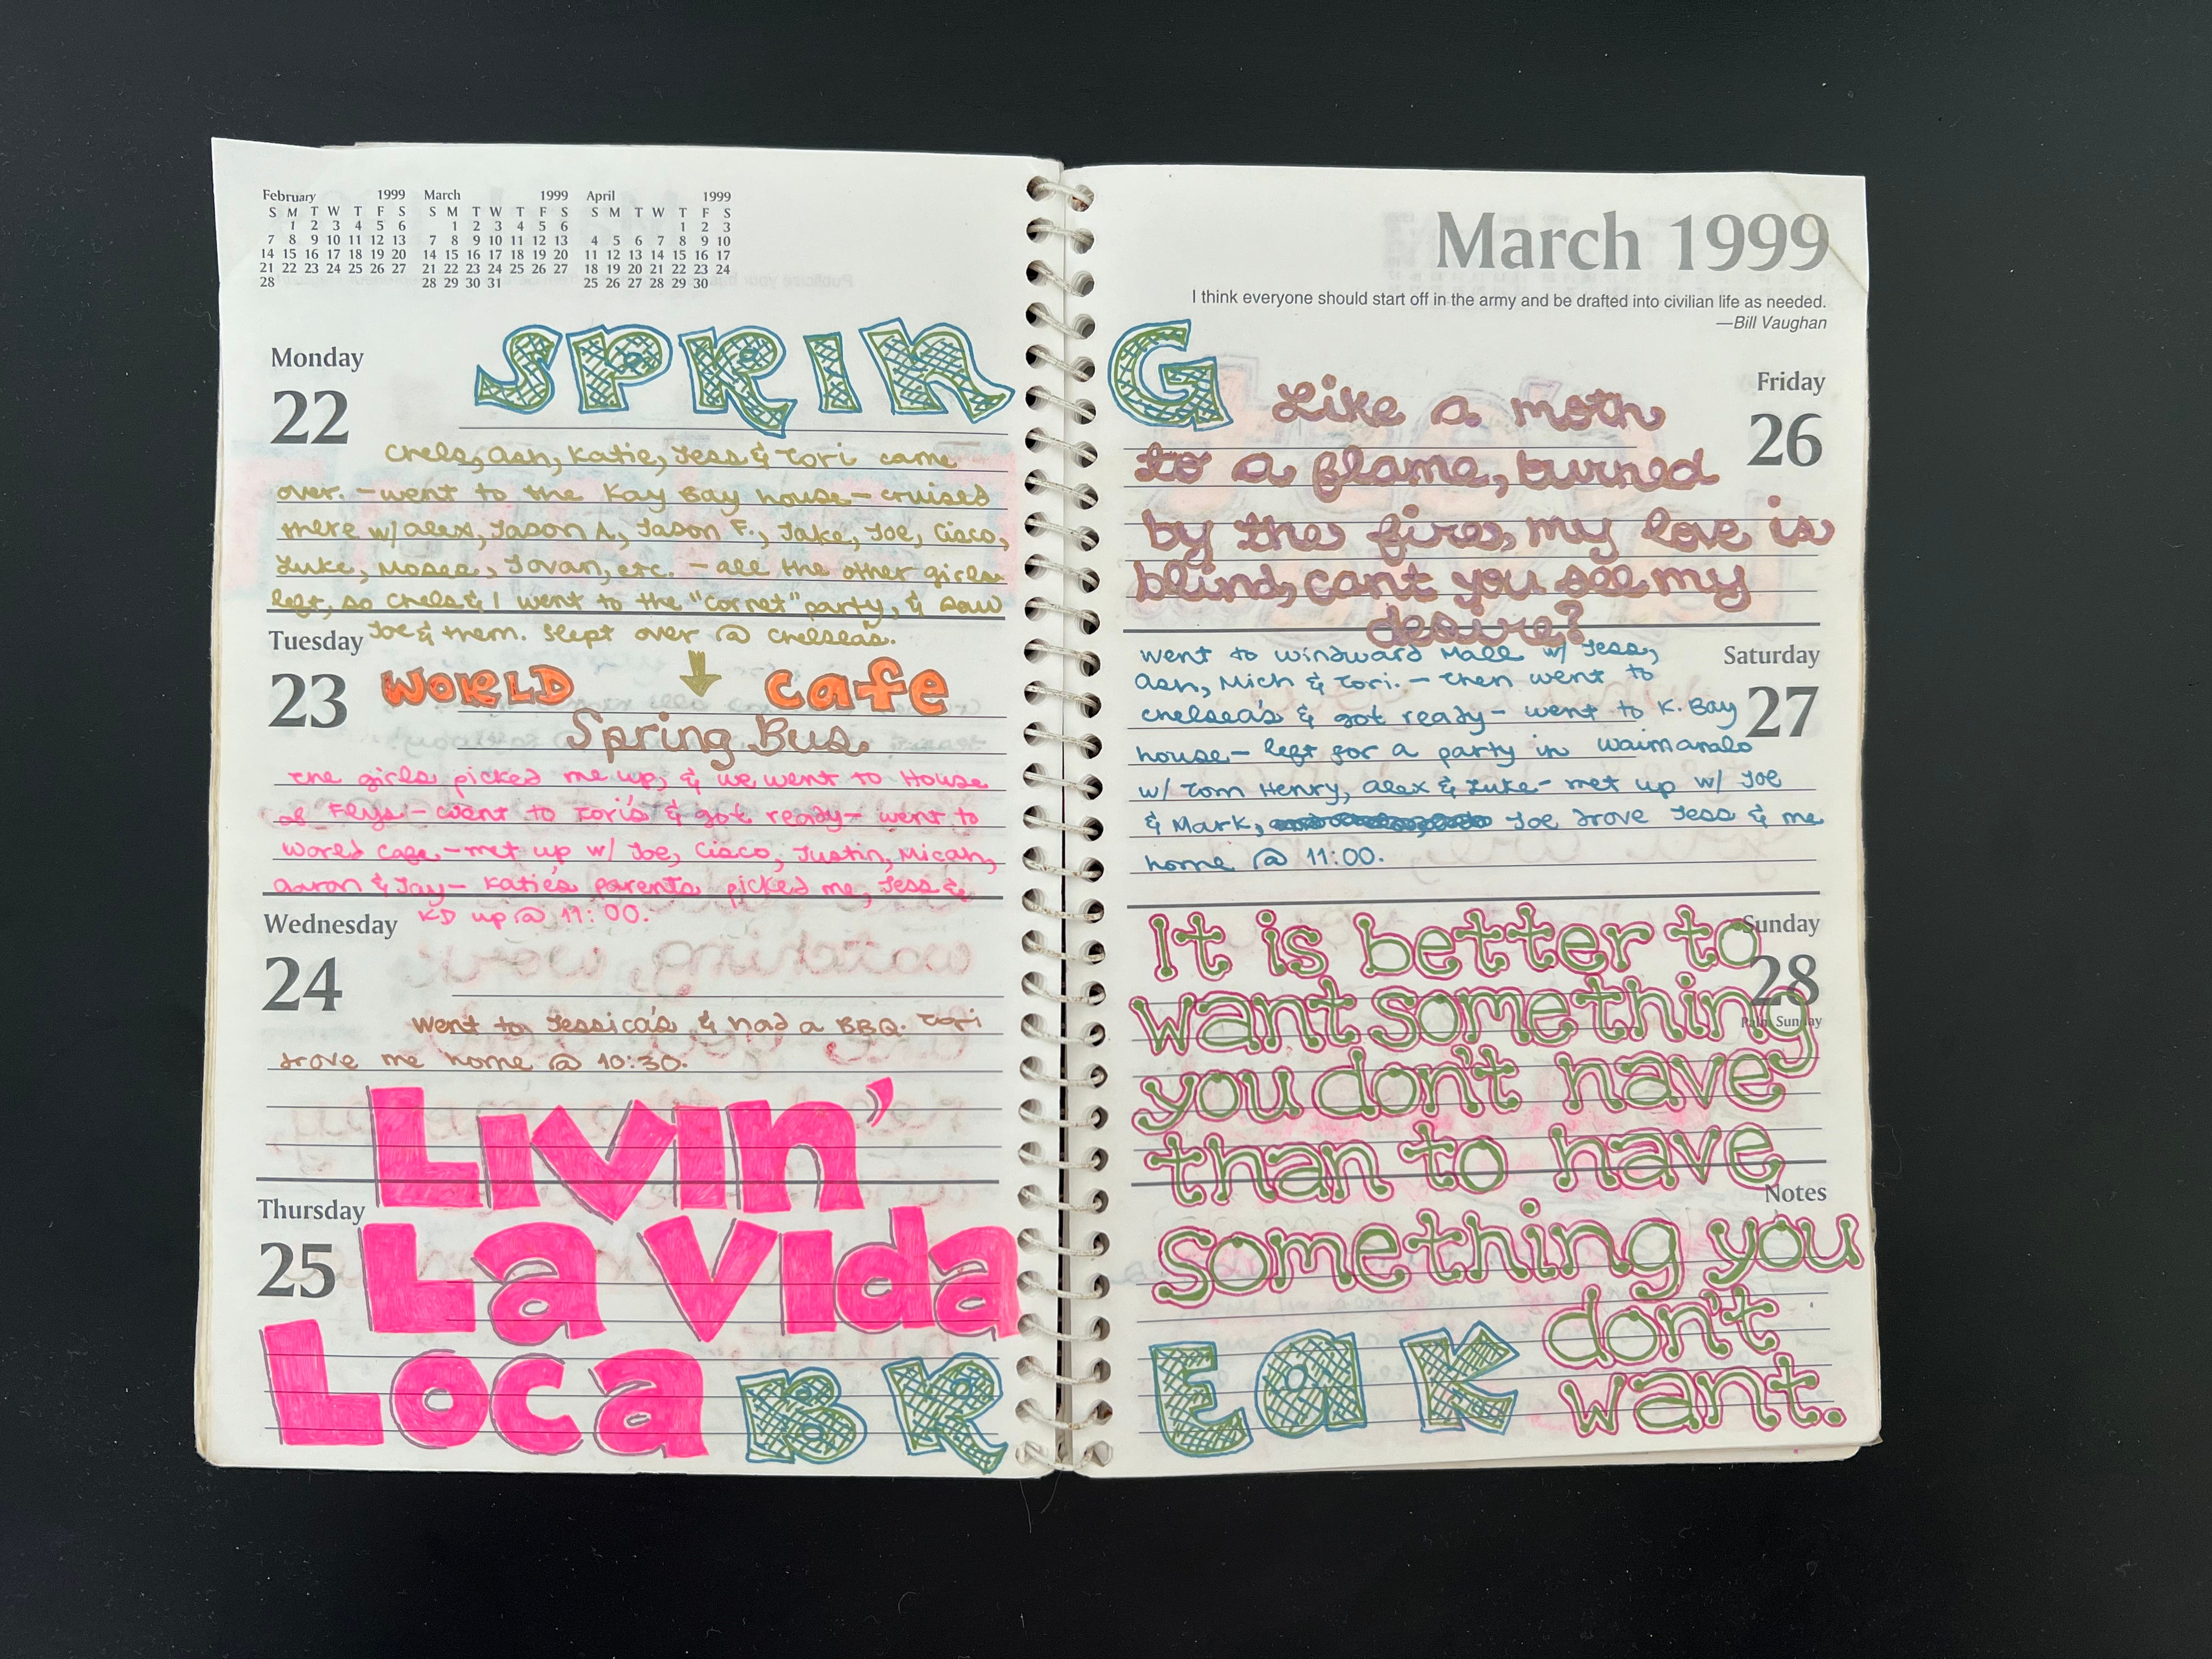 February 1999 March 1999 April 1999
S M T W T F S S M T W T F S S M T W T F S
1 2 3 4 5 6 1 2 3 4 5 6 1 2 3
7 8 9 10 11 12 13 7 8 9 10 11 12 13 4 5 6 7 8 9 10
14 15 16 17 18 19 20 14 15 16 17 18 19 20 11 12 13 14 15 16 17
21 22 23 24 25 26 27 21 22 23 24 25 26 27 18 19 20 21 22 23 24
28 28 29 30 31 25 26 27 28 29 30
SPRIN
Monday
22
Chels, Ash, Katie, Jess & Tori came
over. - went to the Kay Bay house - cruised
there w/ Alex, Jason A., Jason F., Jake, Joe, Cisco,
Luke, Mosea, Jovan, etc. - all the other girls
left, so Chels & I went to the "cornet" party, & saw
Joe & them. Slept over @ Chelsea's.
Tuesday
23
WORLD cafe
Spring Bus
the girls picked me up, & we went to House
of Flys - went to Tori's & got ready - went to
World Cafe - met up w/ Joe, Cisco, Justin, Micah,
Aaron & Jay - Katie's parents picked me, Jess &
KD up @ 11:00.
Wednesday
24
went to Jessica's & had a BBQ. Tori
drove me home @ 10:30.
LIVIN'
Thursday
25
La VIda
Loca BR
March 1999
I think everyone should start off in the army and be drafted into civilian life as needed.
—Bill Vaughan
G
Friday
26
Like a moth
to a flame, burned
by the fire, my love is
blind, cant you see my
desire?
Saturday
27
went to Windward Mall w/ Jess,
Ash, Mich & Tori. - then went to
Chelsea's & got ready - went to K. Bay
house - left for a party in Waimanalo
w/ Tom Henry, Alex & Luke - met up w/ Joe
& Mark, Joe drove Jess & me
home @ 11:00.
Sunday
28
Palm Sunday
It is better to
want something
you don't have
than to have
Notes
something you
don't
want.
EaK